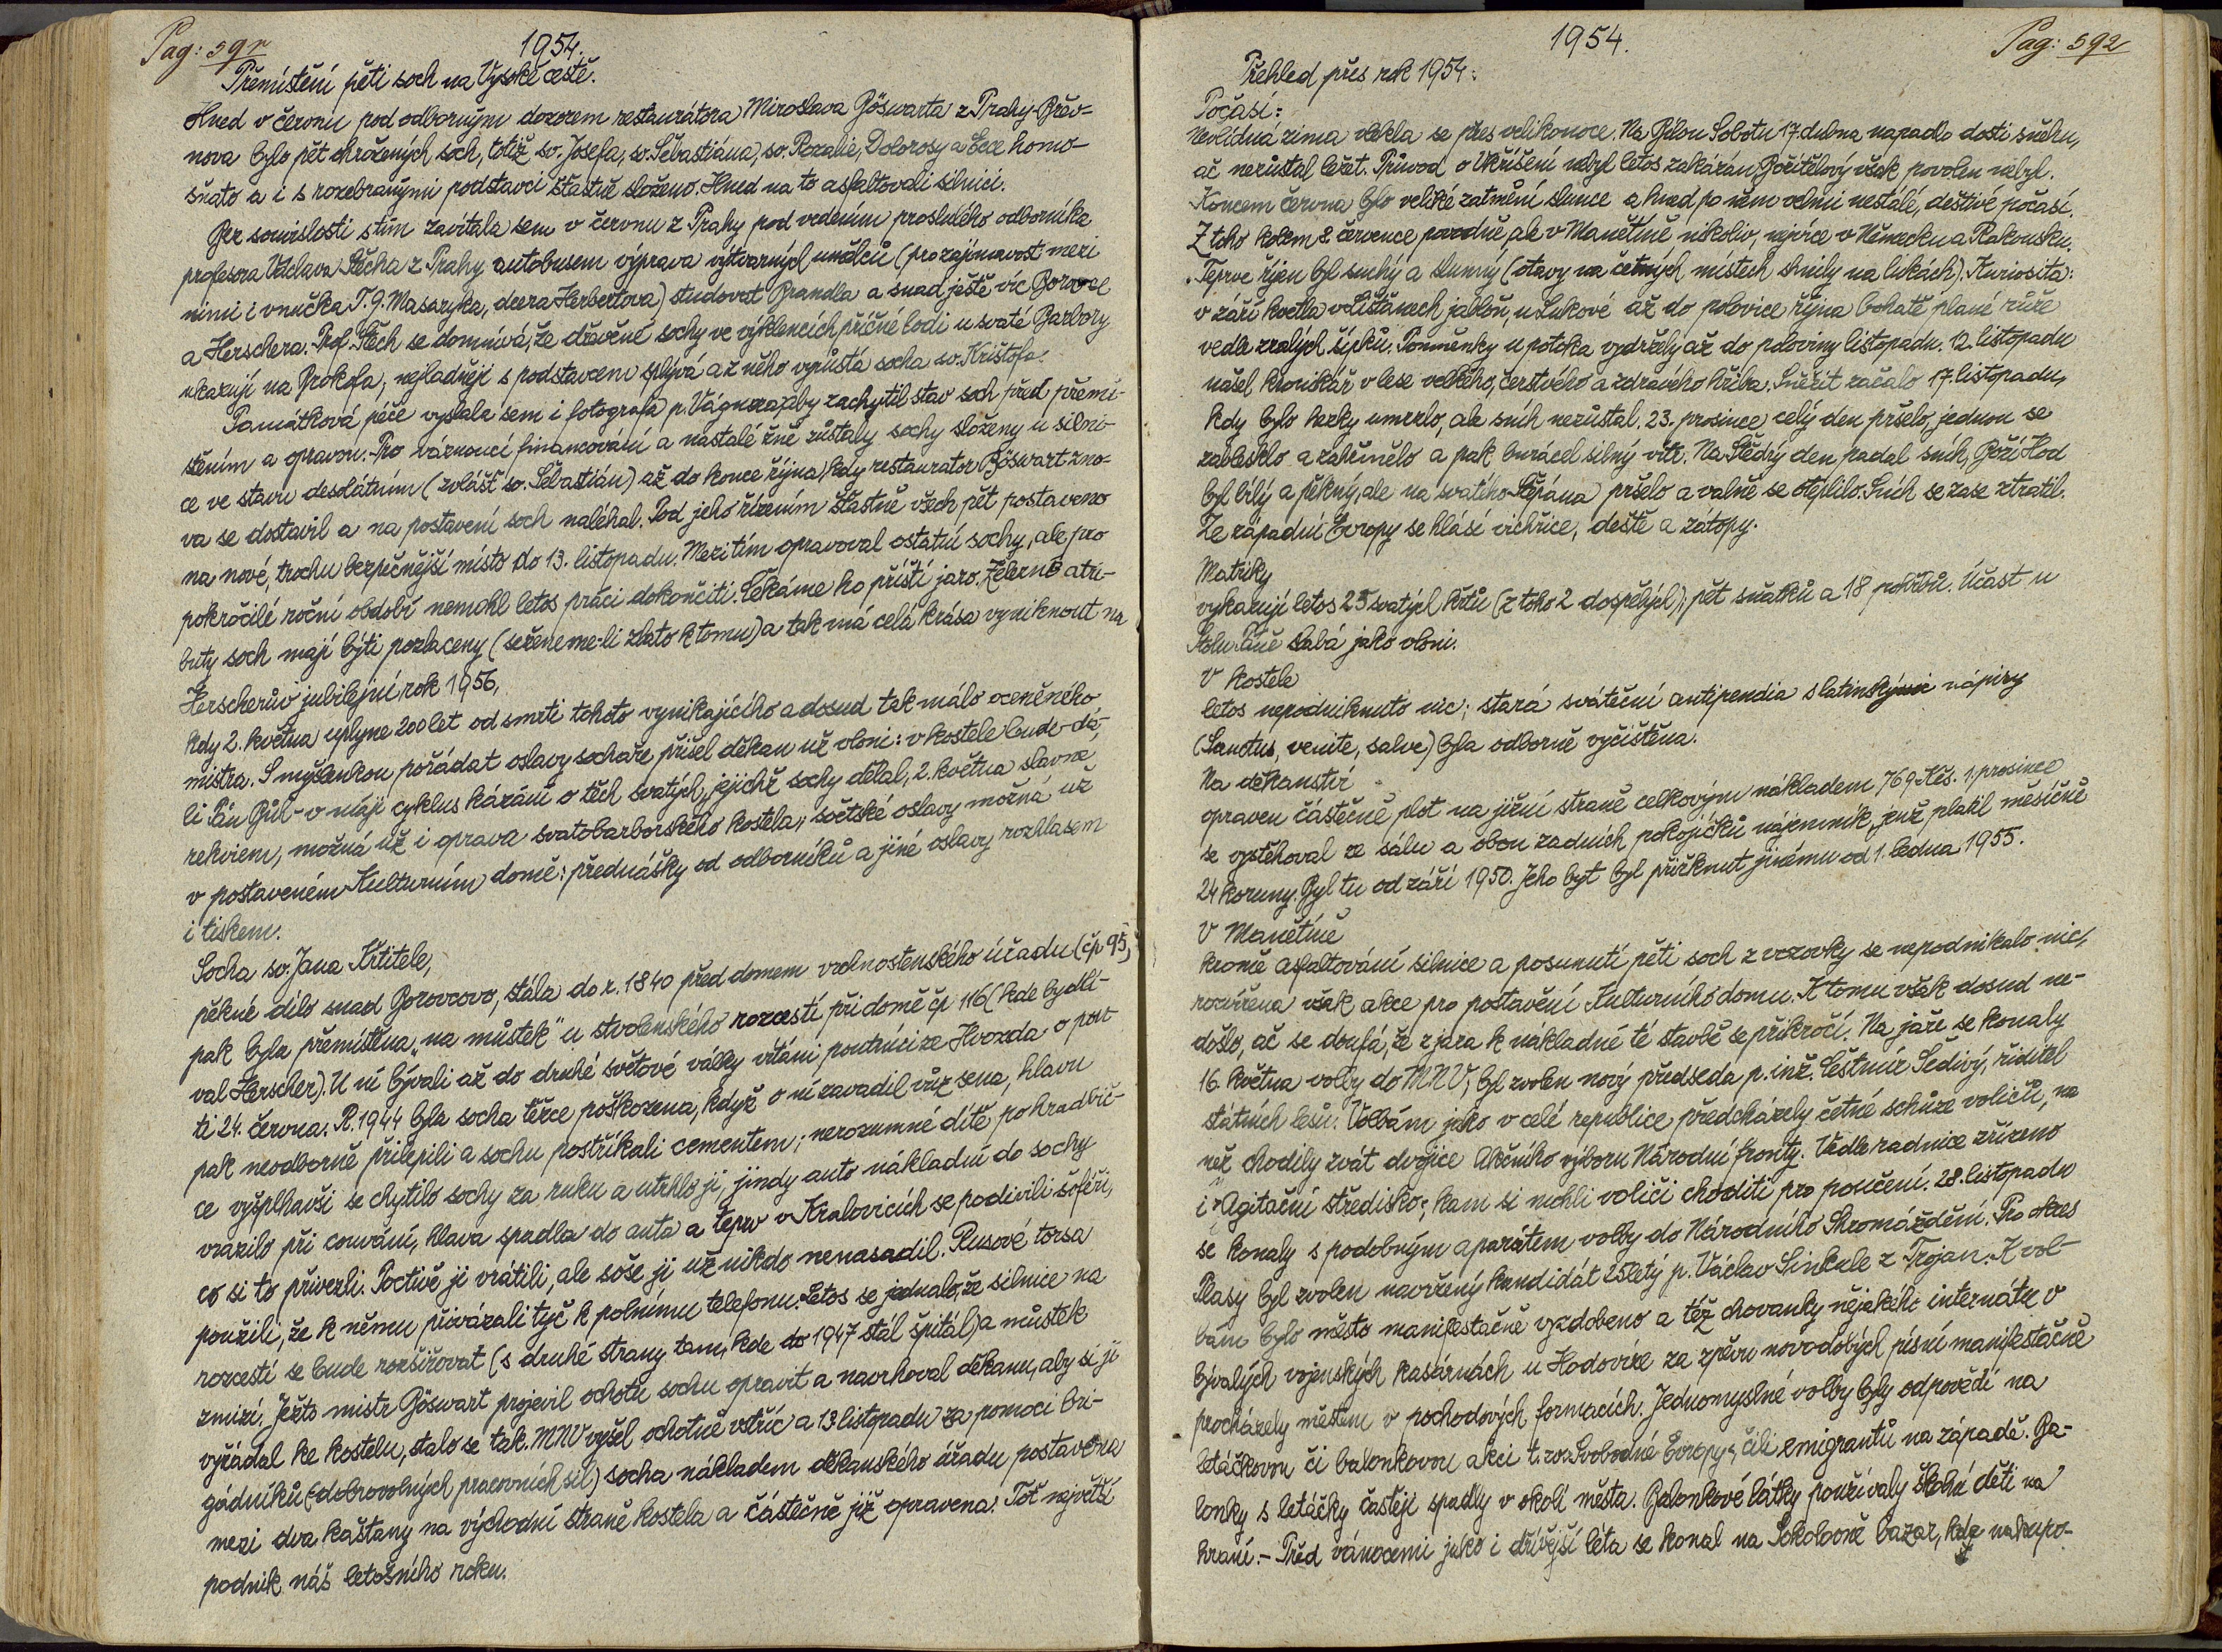 Pag: 591
1954.
Přemístění pěti soch na Vysoké cestě.
Hned v červnu pod odborným dozorem restaurátora Miroslava Böswarta z Prahy-Břev-
nova bylo pět ohrožených soch, totiž sv. Josefa, sv. Šebastiána, sv. Rozalie, Dolorosy a Ecce homo-
sňato a i s rozebranými podstavci šťastně složeno. Hned na to asfaltovali silnici.
Bez souvislosti s tím zavítala sem v červnu z Prahy pod vedením proslulého odborníka
profesora Václava Štěcha z Prahy autobusem výprava výtvarných umělců (pro zajímavost mezi
nimi i vnučka T. G. Masaryka, dcera Herbertova) studovat Brandla a snad ještě víc Borovce
a Herschera. Prof. Štěch se domnívá, že dřevěné sochy ve výklencích příčné lodi u svaté Barbory
ukazují na Prokofa, nejladněji s podstavcem splývá a z něho vyrůstá socha sv. Krištofa.
Památková péče vyslala sem i fotografa p. Vágnera, aby zachytil stav soch před přemí-
stěním a opravou. Pro váznoucí financování a nastalé žně zůstaly sochy složeny u silni-
ce ve stavu desolátním (zvlášť sv. Šebastián) až do konce října, kdy restaurator Böswart zno-
va se dostavil a na postavení soch naléhal. Pod jeho řízením šťastně všech pět postaveno
na nové, trochu bezpečnější místo do 13. listopadu. Mezitím opravoval ostatní sochy, ale pro
pokročilé roční období nemohl letos práci dokončiti. Čekáme ho příští jaro. Železné atri-
buty soch mají býti pozlaceny (seženeme-li zlato k tomu) a tak má celá krása vyniknout na
Herscherův jubilejní rok 1956,
kdy 2. května uplyne 200 let od smrti tohoto vynikajícího a dosud tak málo oceněného
mistra. S myšlenkou pořádat oslavy sochaře přišel děkan už vloni: v kostele bude-dá-
li Pán Bůh - v máji cyklus kázání o těch svatých, jejichž sochy dělal, 2. května slavné
rekviem, možná už i oprava svatobarborského kostela, světské oslavy možná už
v postaveném Kulturním domě: přednášky od odborníků a jiné oslavy rozhlasem
i tiskem.
Socha sv. Jana Křtitele,
pěkné dílo snad Borovcovo, stála do r. 1840 před domem vrchnostenského úřadu (čp 95),
pak byla přemístěna „na můstek" u stvolenského rozcestí při domě čp 116 (kde bydlí-
val Herscher). U ní bývali až do druhé světové války vítáni poutníci ze Hvozda o pou-
ti 24. června. R. 1944 byla socha těžce poškozena, když o ní zavadil vůz sena, hlavu
pak neodborně přilepili a sochu postříkali cementem; nerozumné dítě po hradbič-
ce vyšplhavši se chytilo sochy za ruku a utrhlo ji, jindy auto nákladní do sochy
vrazilo při couvání, hlava spadla do auta a teprv v Kralovicích se podivili šoféři,
co si to přivezli. Poctivě ji vrátili, ale soše ji už nikdo nenasadil. Rusové torsa
použili, že k němu přivázali tyč k polnímu telefonu. Letos se jednalo, že silnice na
rozcestí se bude rozšiřovat (s druhé strany tam, kde do 1947 stál špitál) a můstek
zmizí. Ježto mistr Böswart projevil ochotu sochu opravit a navrhoval děkanu, aby si ji
vyžádal ke kostelu, stalo se tak. MNV vyšel ochotně vstříc a 13. listopadu za pomoci bri-
gádníků (-dobrovolných pracovních sil) socha nákladem děkanského úřadu postavena
mezi dva kaštany na východní straně kostela a částečně již opravena. Toť největší
podnik náš letošního roku.
1954.
Pag: 592
Přehled přes rok 1954:
Počasí:
Nevlídná zima vlekla se přes velikonoce. Na Bílou Sobotu 17. dubna napadlo dosti sněhu,
ač nezůstal ležet. Průvod o Vkříšení nebyl letos zakázán, Božítělový však povolen nebyl.
Koncem června bylo veliké zatmění slunce a hned po něm velmi nestálé, deštivé počasí.
Z toho kolem 8. července povodně, ale v Manětíně nikoliv, nejvíce v Německu a Rakousku.
Teprve říjen byl suchý a slunný (otavy na četných místech shnily na lukách). Kuriosita:
v září kvetla v Lištanech jabloň, u Lukové až do polovice října bohatě plané růže
vedle zralých šípků. Pomněnky u potoka vydržely až do poloviny listopadu. 12. listopadu
našel kronikář v lese velkého, čerstvého a zdravého hřiba. Sněžit začalo 17. listopadu,
kdy bylo hezky umrzlo, ale sníh nezůstal. 23. prosince celý den pršelo, jednou se
zablesklo a zahřmělo a pak burácel silný vítr. Na Štědrý den padal sníh, Boží Hod
byl bílý a pěkný, ale na svatého Štěpána pršelo a valně se oteplilo. Sních se zase ztratil.
Ze západní Evropy se hlásí vichřice, deště a zátopy.
Matriky
vykazují letos 23 svatých křtů (z toho 2 dospělých), pět sňatků a 18 pohřbů. Účast u
Stolu Páně slabá jako vloni.
V kostele
letos nepodniknuto nic; stará sváteční antipendia s latinskými nápisy
(Sanctus, venite, salve) byla odborně vyčištěna.
Na děkanství
opraven částečně plot na jižní straně celkovým nákladem 769 Kčs. 1. prosince
se vystěhoval ze sálu a obou zadních pokojíčků nájemník, jenž platil měsíčně
24 koruny. Byl tu od září 1950. Jeho byt byl přiřknut jinému od 1. ledna 1955.
V Manětíně
kromě asfaltování silnice a posunutí pěti soch z vozovky se nepodnikalo nic,
rozvířena však akce pro postavení Kulturního domu. K tomu však dosud ne-
došlo, ač se doufá, že z jara k nákladné té stavbě se přikročí. Na jaře se konaly
16. května volby do MNV, byl zvolen nový předseda p. inž. Čestmír Šedivý, ředitel
státních lesů. Volbám jako v celé republice předcházely četné schůze voličů, na
něž chodily zvát dvojice Akčního výboru Národní fronty. Vedle radnice zřízeno
i „Agitační středisko", kam si mohli voliči choditi pro poučení. 28. listopadu
se konaly s podobným aparátem volby do Národního Shromáždění. Pro okres
Plasy byl zvolen navržený kandidát 25letý p. Václav Šinkule z Trojan. K vol-
bám bylo město manifestačně vyzdobeno a též chovanky nějakého internátu v
bývalých vojenských kasárnách u Hodovíze za zpěvu novodobých písní manifestačně
procházely městem v pochodových formacích. Jednomyslné volby byly odpovědí na
letáčkovou či balonkovou akci t. zv. Svobodné Evropy", čili emigrantů na západě. Ba-
lonky s letáčky častěji spadly v okolí města. Balonkové látky používaly školní děti na
hraní. - Před vánocemi jako i dřívější léta se konal na Sokolovně bazar, kde nakupo-